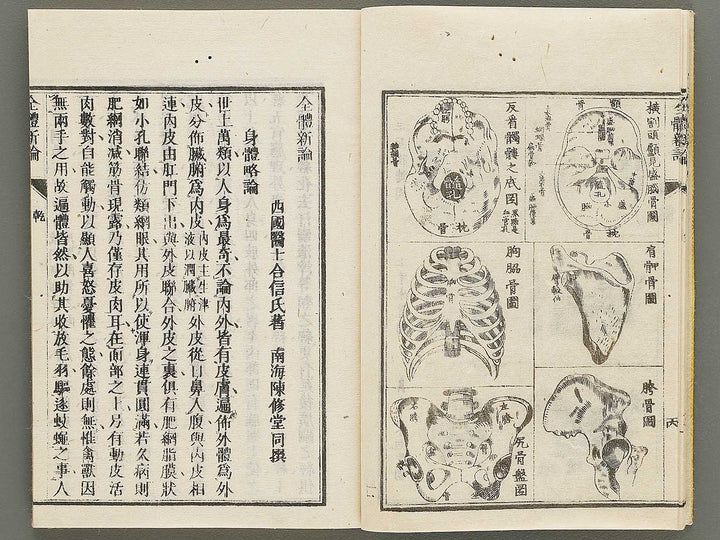 橫割頭顱見盛腦骨圖
枕
骨
反看髑髏之底圖
枕
骨
肩胛骨圖
胸脇骨圖
胯骨圖
尻骨盤圖
全體新論
全體新論
身體略論
西國醫士合信氏著 南海陳修堂同撰
世上萬類以人身爲最奇不論內外皆有皮膚遍佈外體爲外
皮分佈臟腑爲內皮內皮主生津液以潤臟腑外皮從口鼻入腹與內皮相
連內皮由肛門下出與外皮聯合外皮之裏俱有肥網脂膜狀
如小孔聯結彷類網眼其用所以使渾身連貫圓滿若久病則
肥網消減筋骨現露乃僅存皮肉耳在面部之上另有動皮活
肉數對自能觸動以顯人喜怒憂懼之態餘處則無惟禽獸因
無兩手之用故遍體皆然以助其收放毛羽驅逐蚊蠅之事人
全體新論
乾